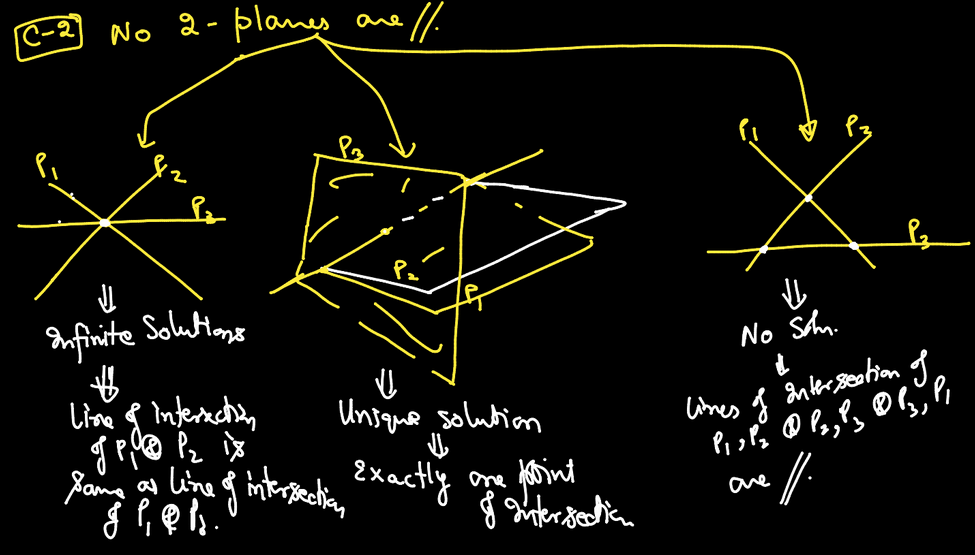 C-2 No 2-planes are //.
P₁ P₂ P₃
Infinite Solutions
Line of intersection
of P₁ & P₂ is
same as line of intersection
of P₁ & P₃.
P₃
P₂
P₁
Unique solution
Exactly one point
of Intersection
P₁ P₃
P₃
No Soln.
lines of Intersection of
P₁, P₂ & P₂, P₃ & P₃, P₁
are //.